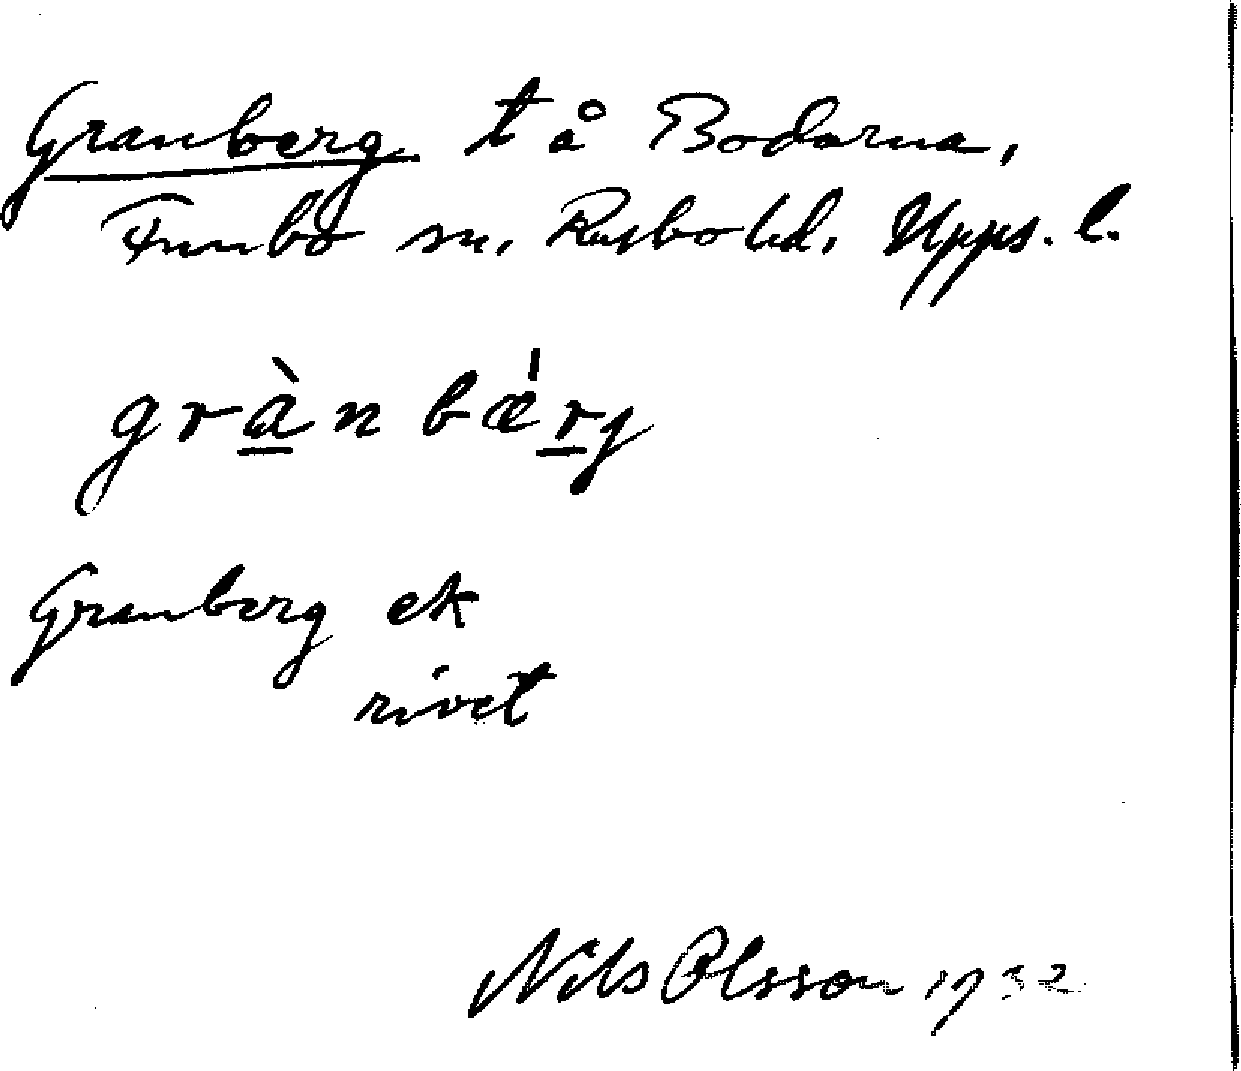 Granberg t å Bodarna,
Funbo sn, Rasbo hd, Upps. l.
gràn bǽrj
Granberg ek
rivet
Nils Olsson 1932